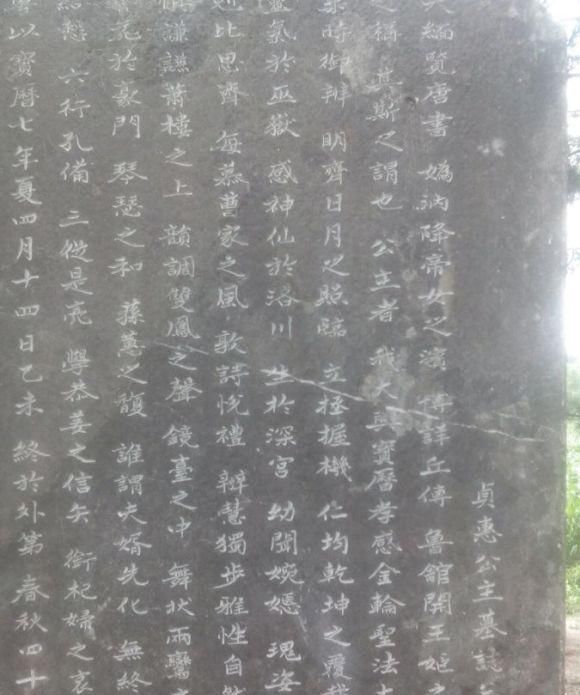 貞惠公主墓誌
夫緬覽唐書 媯汭降帝女之濱 博詳丘傳 魯館開王姬之
之稱 其斯之謂也 公主者 我大興寶曆孝感金輪聖法大
乘時御辨 明齊日月之照臨 立極握機 仁均乾坤之覆載
靈氣於巫嶽 感神仙於洛川 生於深宮 幼聞婉嫕 瑰姿
比思齊 每慕曹家之風 敦詩悅禮 辨慧獨步 雅性自然
謙讌簫樓之上 韻調雙鳳之聲 鏡臺之中 舞狀兩鸞之
於豪門 琴瑟之和 蓀蕙之馥 誰謂夫婿先化 無終
六行孔備 三從是亮 學恭姜之信矢 銜杞婦之哀
以寶曆七年夏四月十四日乙未 終於外第 春秋四十